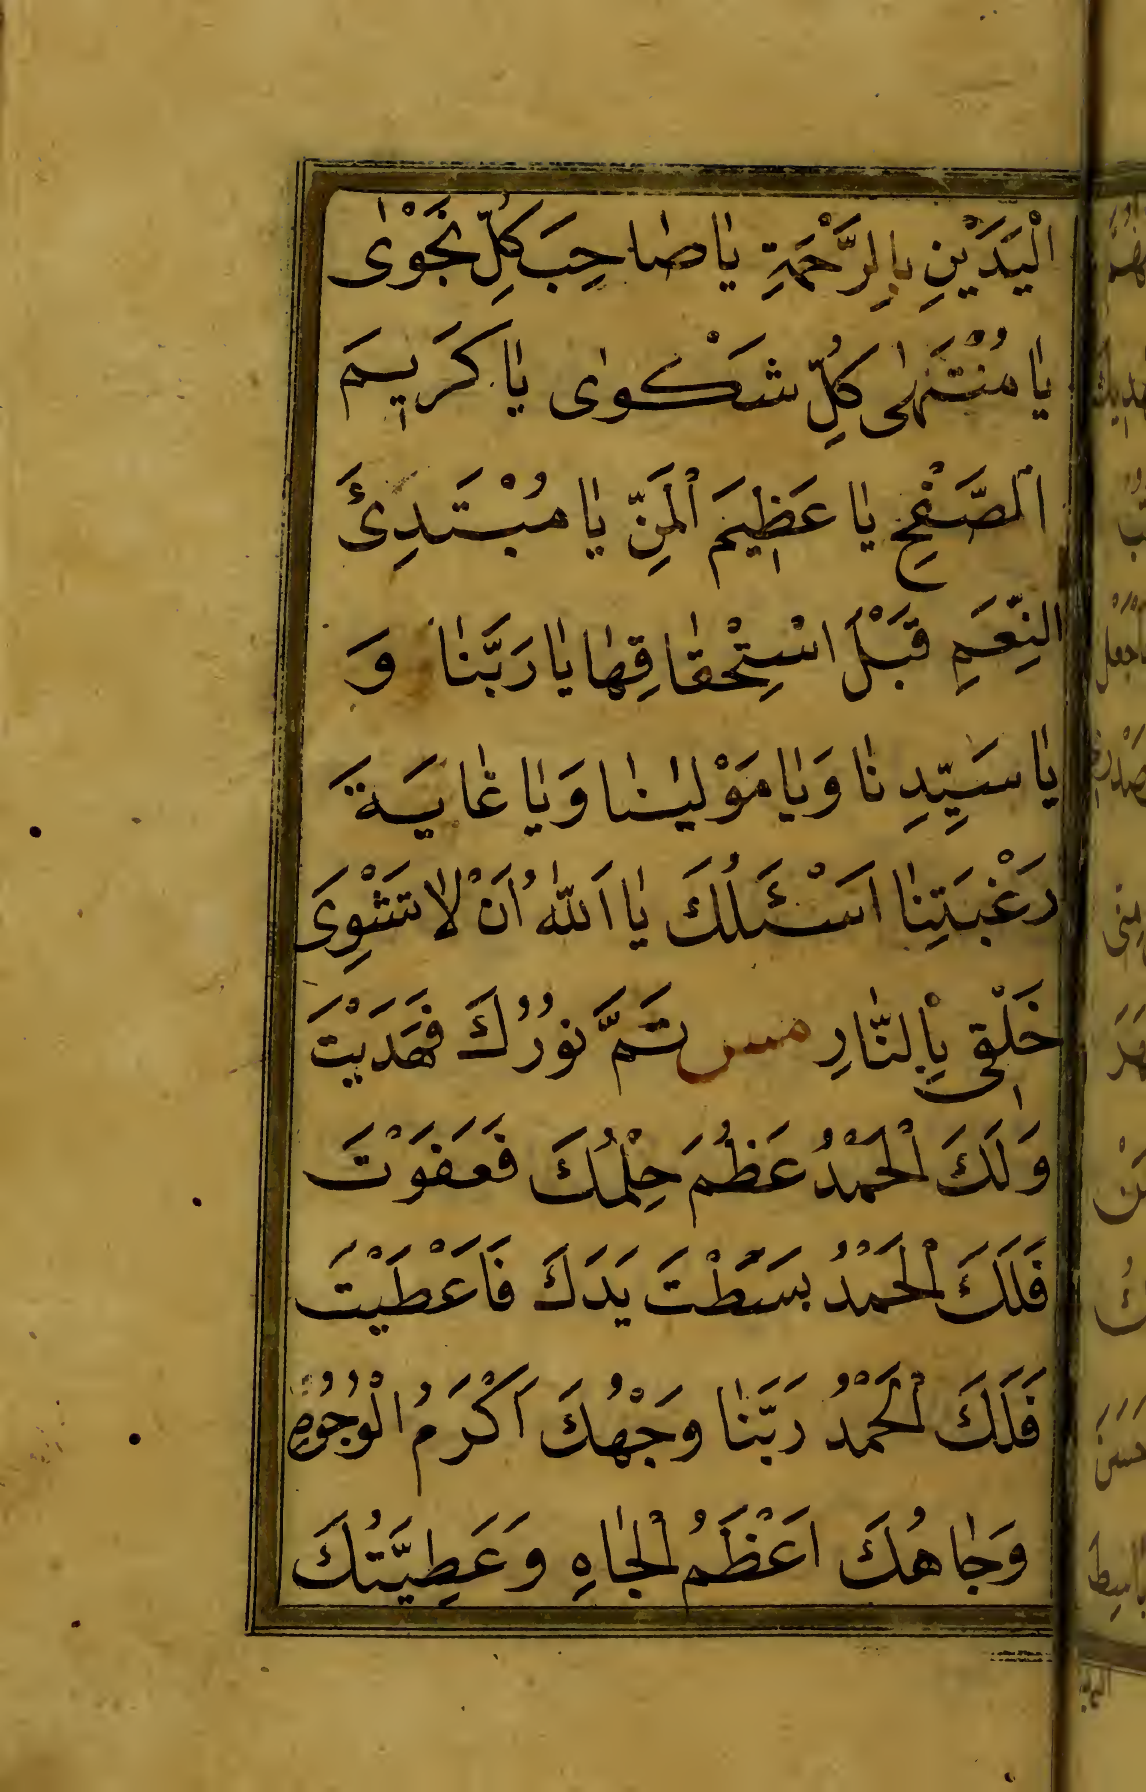 الْيَدَيْنِ بِالرَّحْمَةِ يَا صَاحِبَ كُلِّ نَجْوٰى
يَا مُنْتَهٰى كُلِّ شَكْوٰى يَا كَرِيمَ
الصَّفْحِ يَا عَظِيمَ الْمَنِّ يَا مُبْتَدِئَ
النِّعَمِ قَبْلَ اسْتِحْقَاقِهَا يَا رَبَّنَا وَ
يَا سَيِّدِنَا وَيَا مَوْلٰينَا وَيَا غَايَةَ
رَغْبَتِنَا اَسْئَلُكَ يَا اَللّٰهُ اَنْ لَا تَشْوِىَ
خَلْقِى بِالنَّارِ مس تَمَّ نُورُكَ فَهَدَيْتَ
وَلَكَ الْحَمْدُ عَظُمَ حِلْمُكَ فَعَفَوْتَ
فَلَكَ الْحَمْدُ بَسَطْتَ يَدَكَ فَاَعْطَيْتَ
فَلَكَ الْحَمْدُ رَبَّنَا وَجْهُكَ اَكْرَمُ الْوُجُوهِ
وَجَاهُكَ اَعْظَمُ الْجَاهِ وَعَطِيَّتُكَ